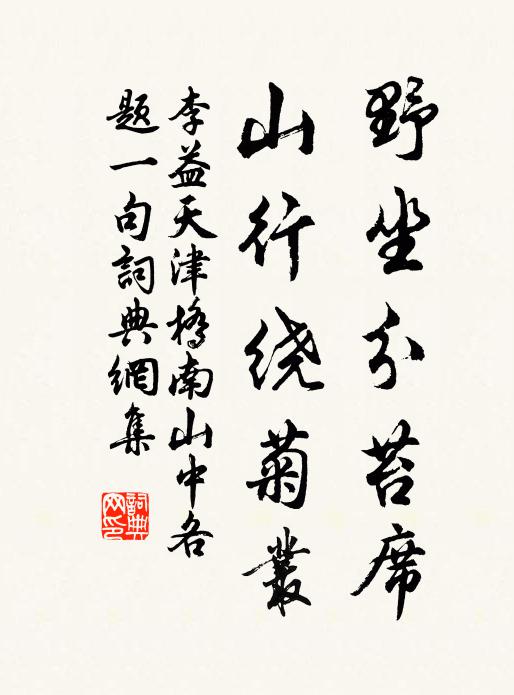 野坐分苔席
山行绕菊叢
李益天津橋南山中各
題一句詞典網集
詞典网印